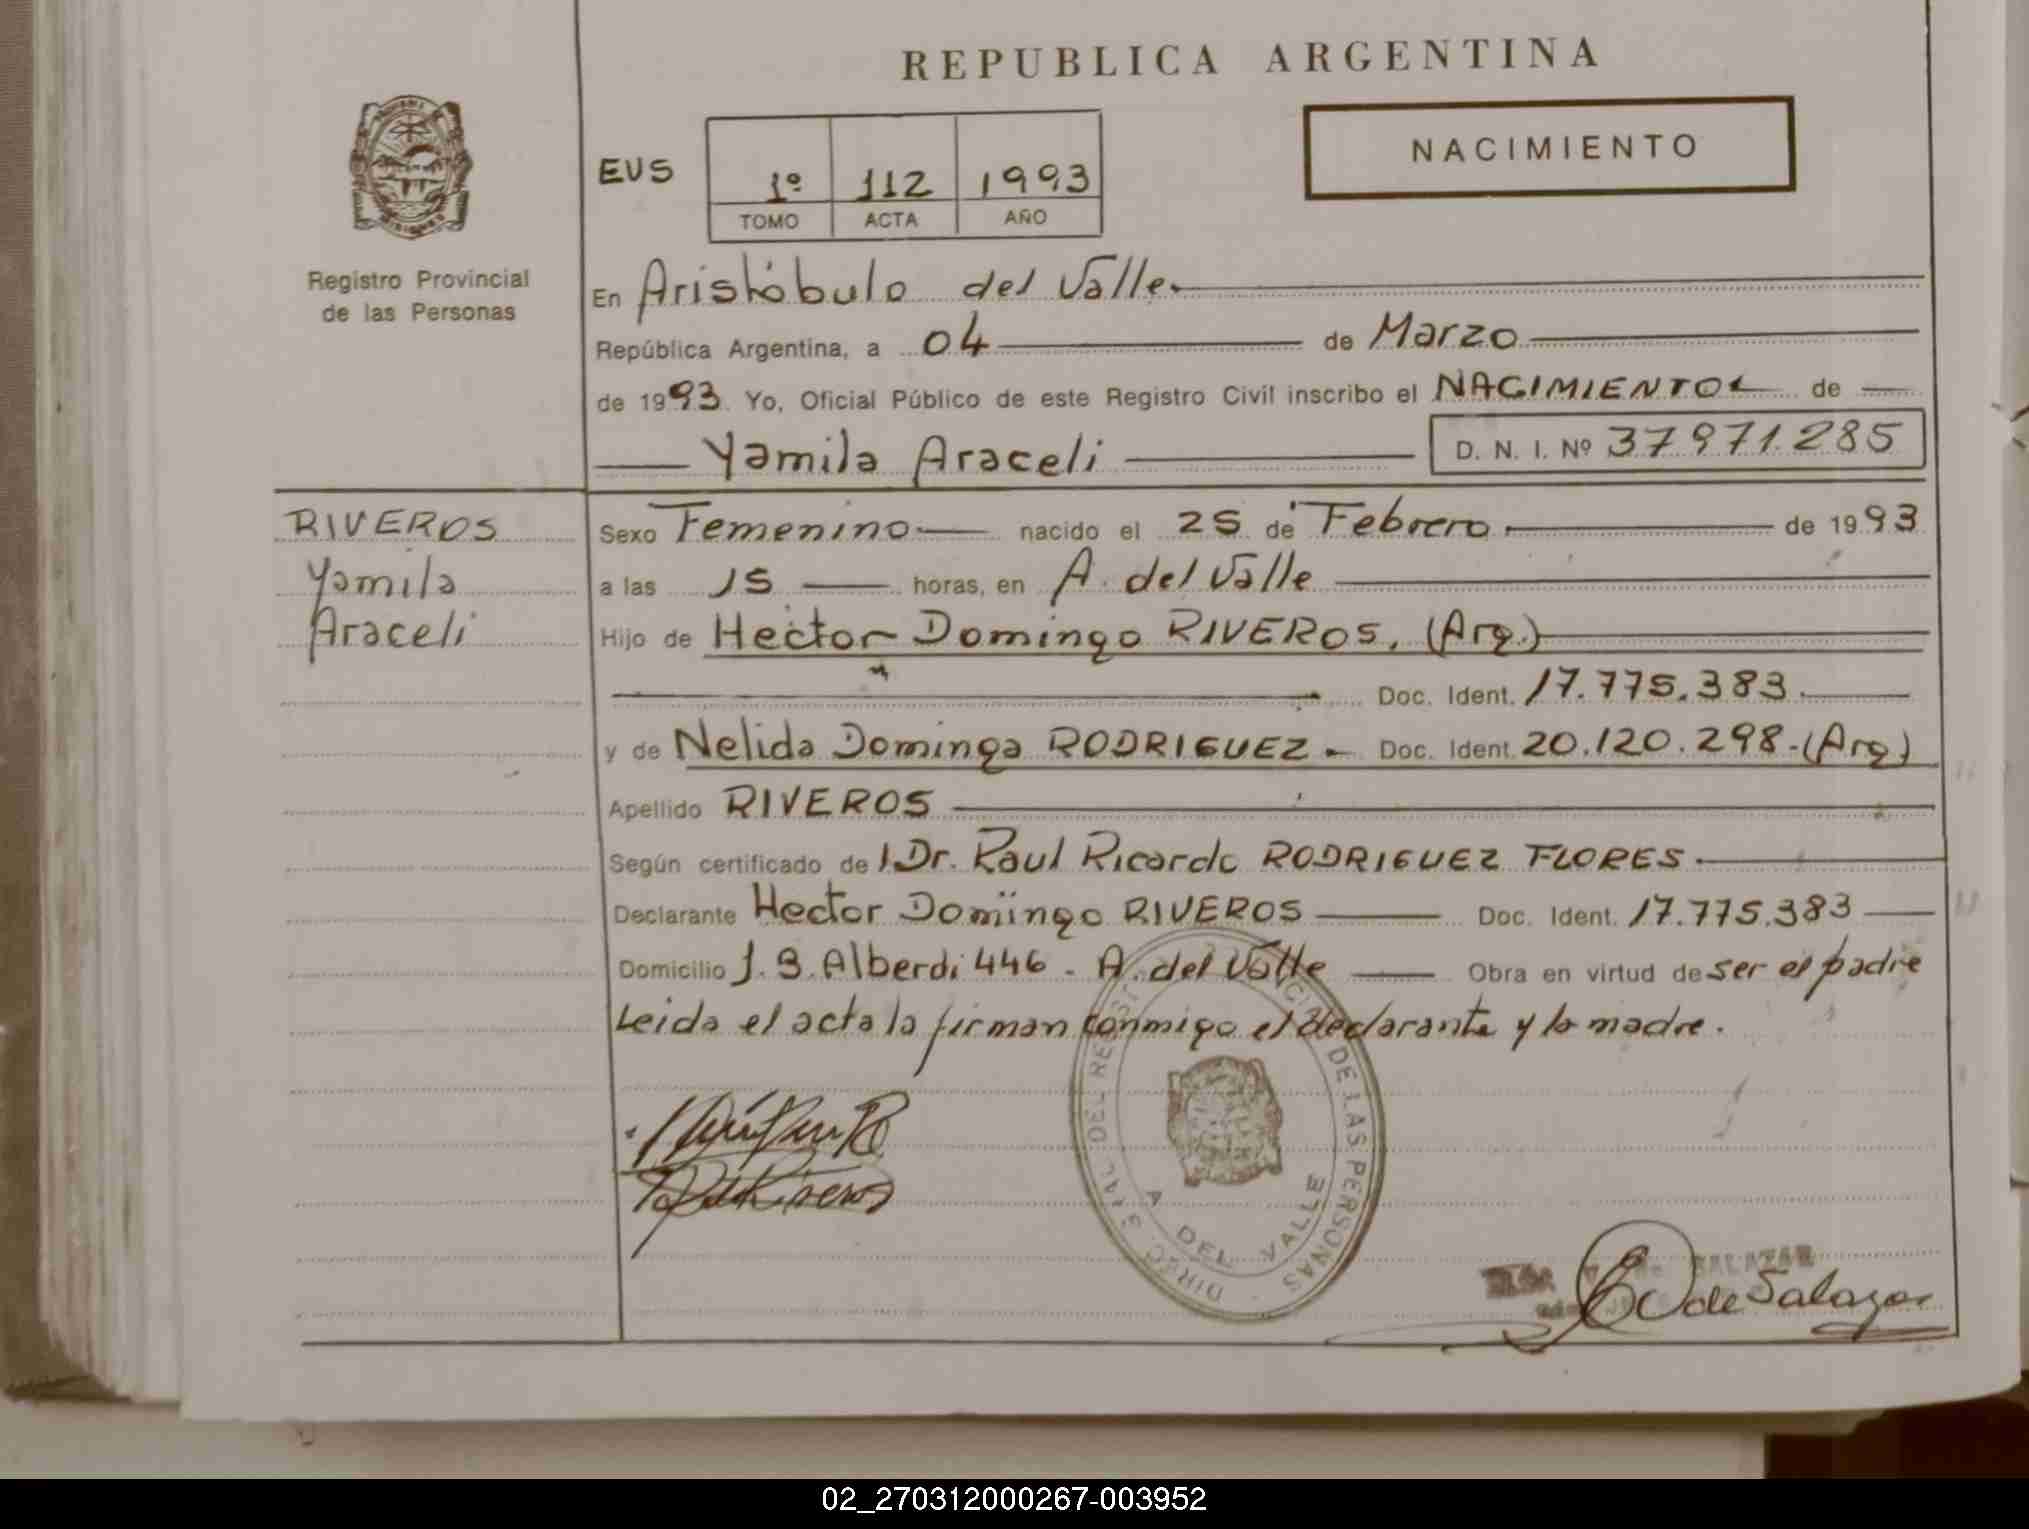 REPUBLICA ARGENTINA
NACIMIENTO
EUS
1º 112 1993
TOMO ACTA AÑO
Registro Provincial
de las Personas
En Aristóbulo del Valle.
República Argentina, a 04 de Marzo
de 1993. Yo, Oficial Público de este Registro Civil inscribo el NACIMIENTO de
Yamila Araceli D. N. I. Nº 37971.285
RIVEROS
Yamila
Araceli
Sexo Femenino nacido el 25 de Febrero de 1993
a las 15 horas, en A. del Valle
Hijo de Hector Domingo RIVEROS, (Arg.)
Doc. Ident. 17.775.383.
y de Nelida Dominga RODRIGUEZ - Doc. Ident. 20.120.298-(Arg)
Apellido RIVEROS
Según certificado de Dr. Raul Ricardo RODRIGUEZ FLORES.
Declarante Hector Domingo RIVEROS Doc. Ident. 17.775.383
Domicilio J. B. Alberdi 446 - A. del Valle Obra en virtud de ser el padre
Leida el acta la firman conmigo el declarante y la madre.
DEL DE LAS PERSONAS
A DEL VALLE
SALAZAR
de Salazar
02_270312000267-003952